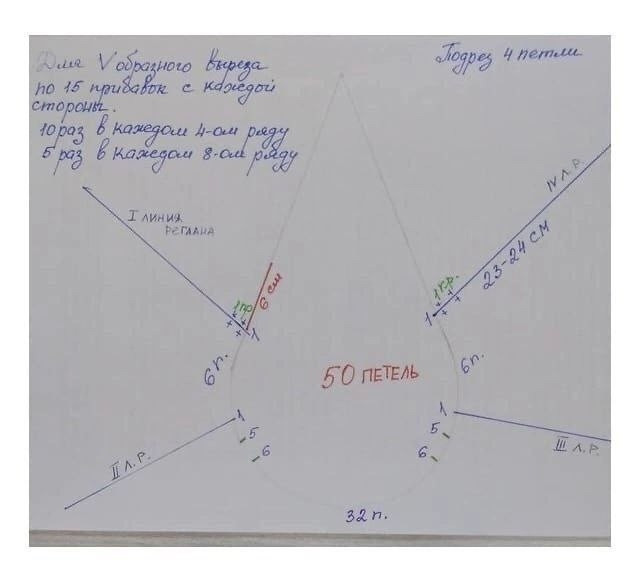 Для V образного выреза
по 15 прибавок с каждой
стороны.
10 раз в каждом 4-ом ряду
5 раз в каждом 8-ом ряду
Подрез 4 петли
I линия
реглана
IV л.р.
23-24 см
1 пр.
6 см
1
1 пр.
1
6 п.
50 петель
6 п.
1
5
6
II л.р.
1
5
6
III л.р.
32 п.